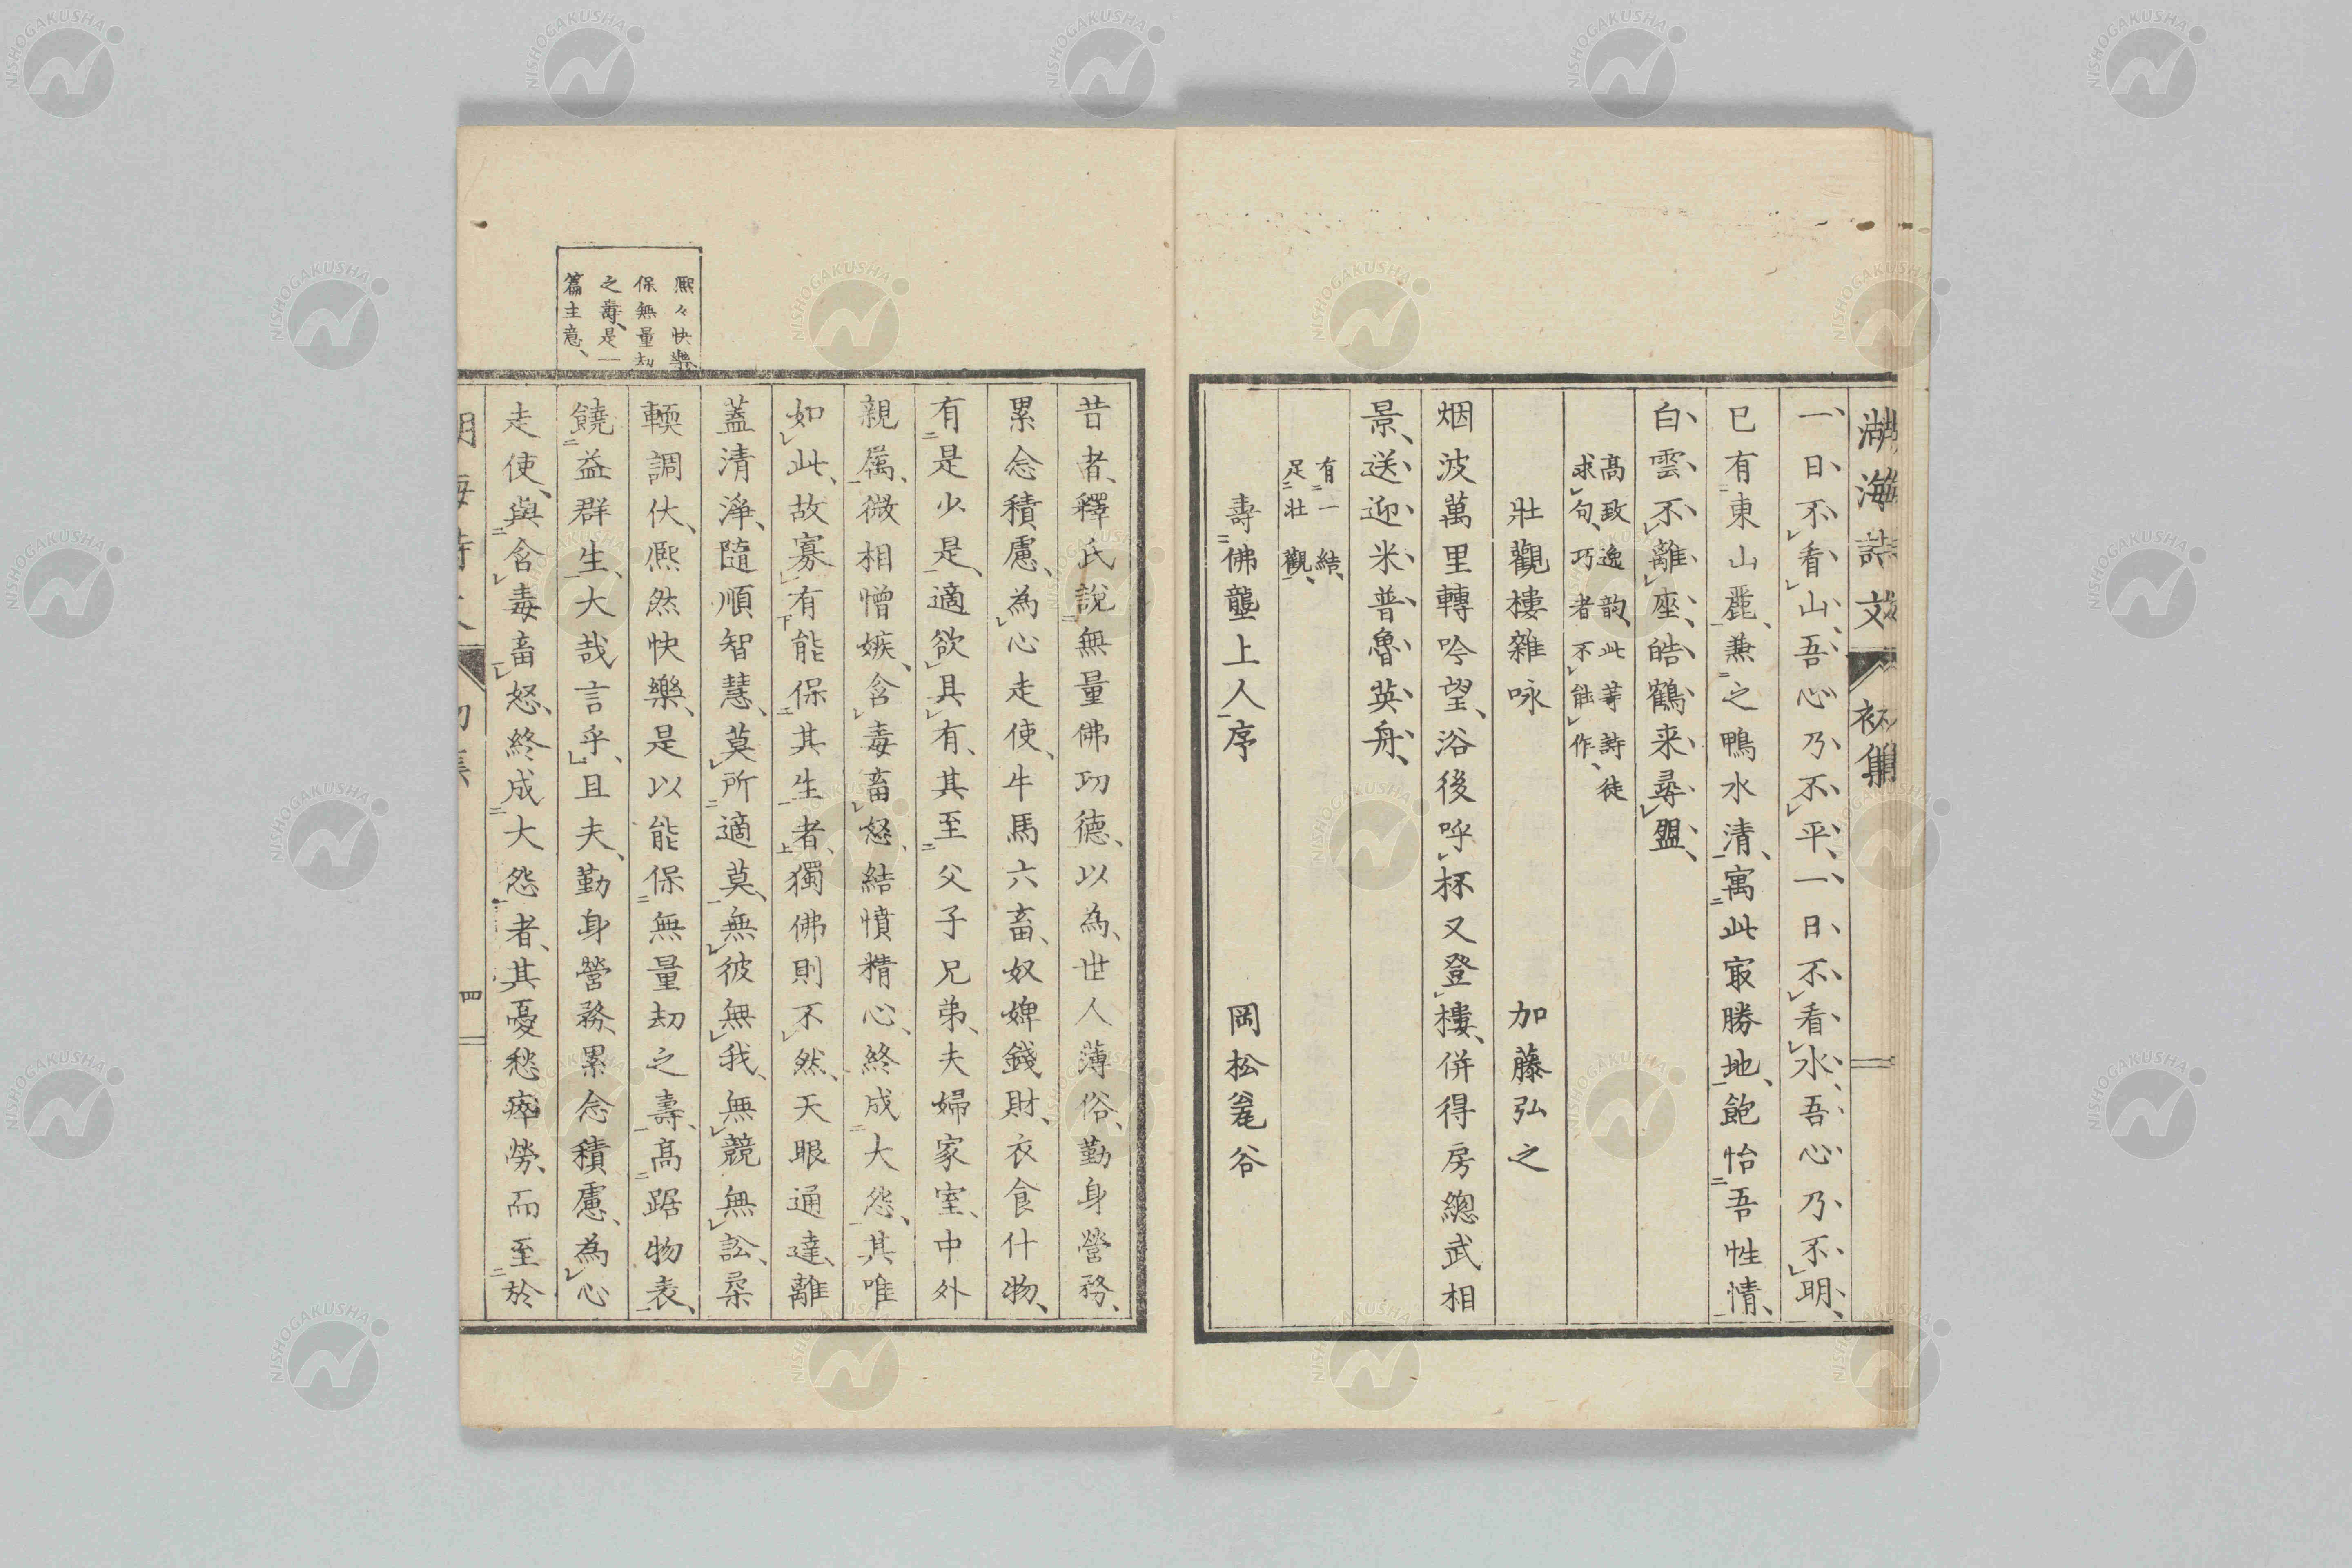 湖海詩文 初集
一日不看山、吾心乃不平、一日不看水、吾心乃不明、
已有東山麗、兼之鴨水清、寓此㝡勝地、飽怡吾性情、
白雲不離座、皓鶴来尋盟、
高致逸韵、此等詩徒
求句巧者不能作、
壯觀樓雜咏 加藤弘之
烟波萬里轉吟望、浴後呼杯又登樓、併得房總武相
景、送迎米普魯英舟、
有一結、
足壯觀、
壽佛壟上人序 岡松瓮谷
昔者、釋氏說無量佛功德、以為、世人薄俗、勤身營務、
累念積慮、為心走使、牛馬六畜、奴婢錢財、衣食什物、
有是少是、適欲具有、其至父子兄弟、夫婦家室、中外
親属、微相憎嫉、含毒畜怒、結憤精心、終成大怨、其唯
如此、故寡有能保其生者、獨佛則不然、天眼通達、離
蓋清淨、隨順智慧、莫所適莫、無彼無我、無競無訟、柔
輭調伏、熈然快樂、是以能保無量劫之壽、高踞物表、
饒益群生、大哉言乎、且夫、勤身營務、累念積慮、為心
走使、與含毒畜怒、終成大怨者、其憂愁瘁勞、而至於
熈々快樂、
保無量劫
之壽、是一
篇主意、
四
NISHOGAKUSHA